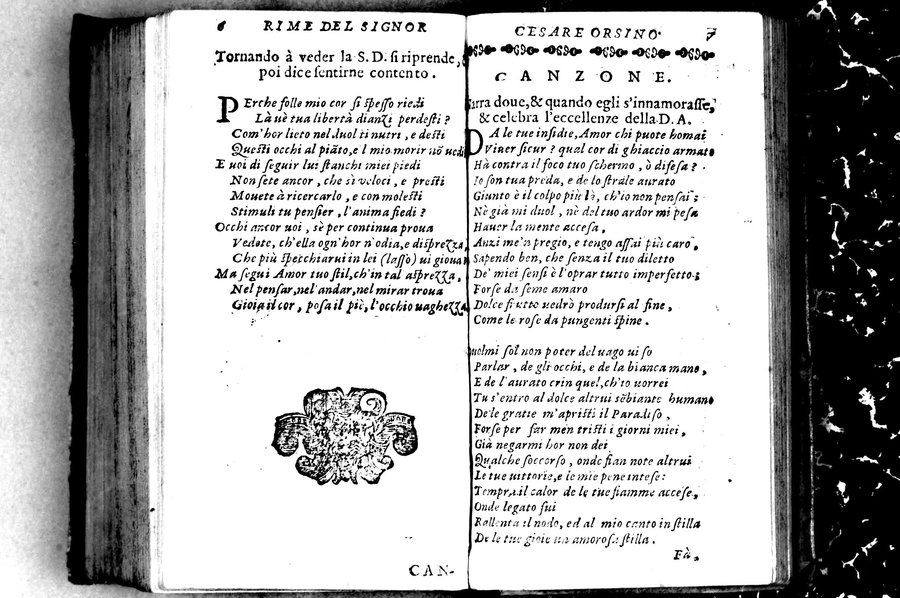 6 RIME DEL SIGNOR
Tornando à veder la S. D. si riprende,
poi dice sentirne contento.
PErche folle mio cor sì spesso riedi
Là ue tua libertà dianzi perdesti?
Com'hor lieto nel duol ti nutri, e desti
Questi occhi al piāto, e l mio morir nō uedi
E uoi di seguir lui stanchi miei piedi
Non sete ancor, che sì veloci, e presti
Mouete à ricercarlo, e con molesti
Stimuli tu pensier, l'anima fiedi?
Occhi ancor uoi, sè per continua proua
Vedete, ch'ella ogn'hor n'odia, e disprezza,
Che più specchiarui in lei (lasso) ui gioua
Ma segui Amor tuo stil, ch'in tal asprezza,
Nel pensar, nel'andar, nel mirar troua
Gioia il cor, posa il piè, l'occhio uaghezza.
CAN-
CESARE ORSINO. 7
CANZONE.
Narra doue, & quando egli s'innamorasse,
& celebra l'eccellenze della D. A.
DA le tue insidie, Amor chi puote homai
Viuer sicur? qual cor di ghiaccio armato
Hà contra il foco tuo schermo, ò difesa?
Io son tua preda, e de lo strale aurato
Giunto è il colpo più là, ch'io non pensai;
Nè già mi duol, nè del tuo ardor mi pesa
Hauer la mente accesa,
Anzi me'n pregio, e tengo assai più caro,
Sapendo ben, che senza il tuo diletto
De' miei sensi è l'oprar tutto imperfetto;
Forse da seme amaro
Dolce frutto uedrò prodursi al fine,
Come le rose da pungenti spine.
Duolmi sol non poter del uago uiso
Parlar, de gli occhi, e de la bianca mano,
E de l'aurato crin quel, ch'io uorrei
Tu s'entro al dolce altrui sēbiante humano
De le gratie m'apristi il Paradiso,
Forse per far men tristi i giorni miei,
Già negarmi hor non dei
Qualche soccorso, onde fian note altrui
Le tue uittorie, e le mie pene intese:
Tempra il calor de le tue fiamme accese,
Onde legato fui
Rallenta il nodo, ed al mio canto instilla
De le tue gioie un amorosa stilla.
Fà,